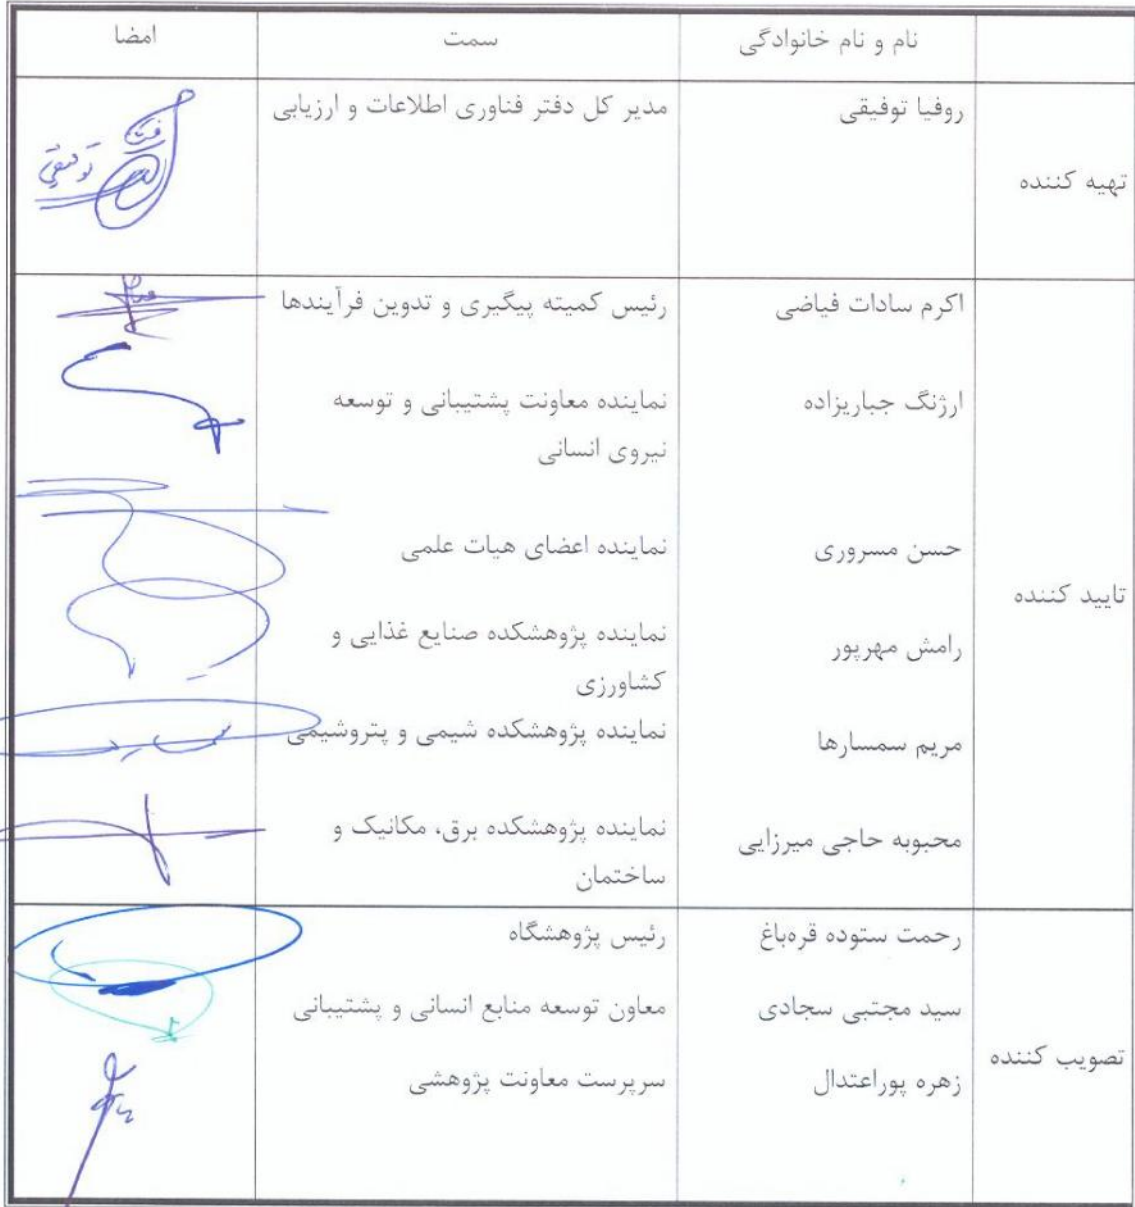 نام و نام خانوادگی
سمت
امضا
تهیه کننده
روفیا توفیقی
مدیر کل دفتر فناوری اطلاعات و ارزیابی
توفیقی
تایید کننده
اکرم سادات فیاضی
رئیس کمیته پیگیری و تدوین فرآیندها
ارژنگ جباریزاده
نماینده معاونت پشتیبانی و توسعه
نیروی انسانی
حسن مسروری
نماینده اعضای هیات علمی
رامش مهرپور
نماینده پژوهشکده صنایع غذایی و
کشاورزی
مریم سمسارها
نماینده پژوهشکده شیمی و پتروشیمی
محبوبه حاجی میرزایی
نماینده پژوهشکده برق، مکانیک و
ساختمان
تصویب کننده
رحمت ستوده قره‌باغ
رئیس پژوهشگاه
سید مجتبی سجادی
معاون توسعه منابع انسانی و پشتیبانی
زهره پوراعتدال
سرپرست معاونت پژوهشی